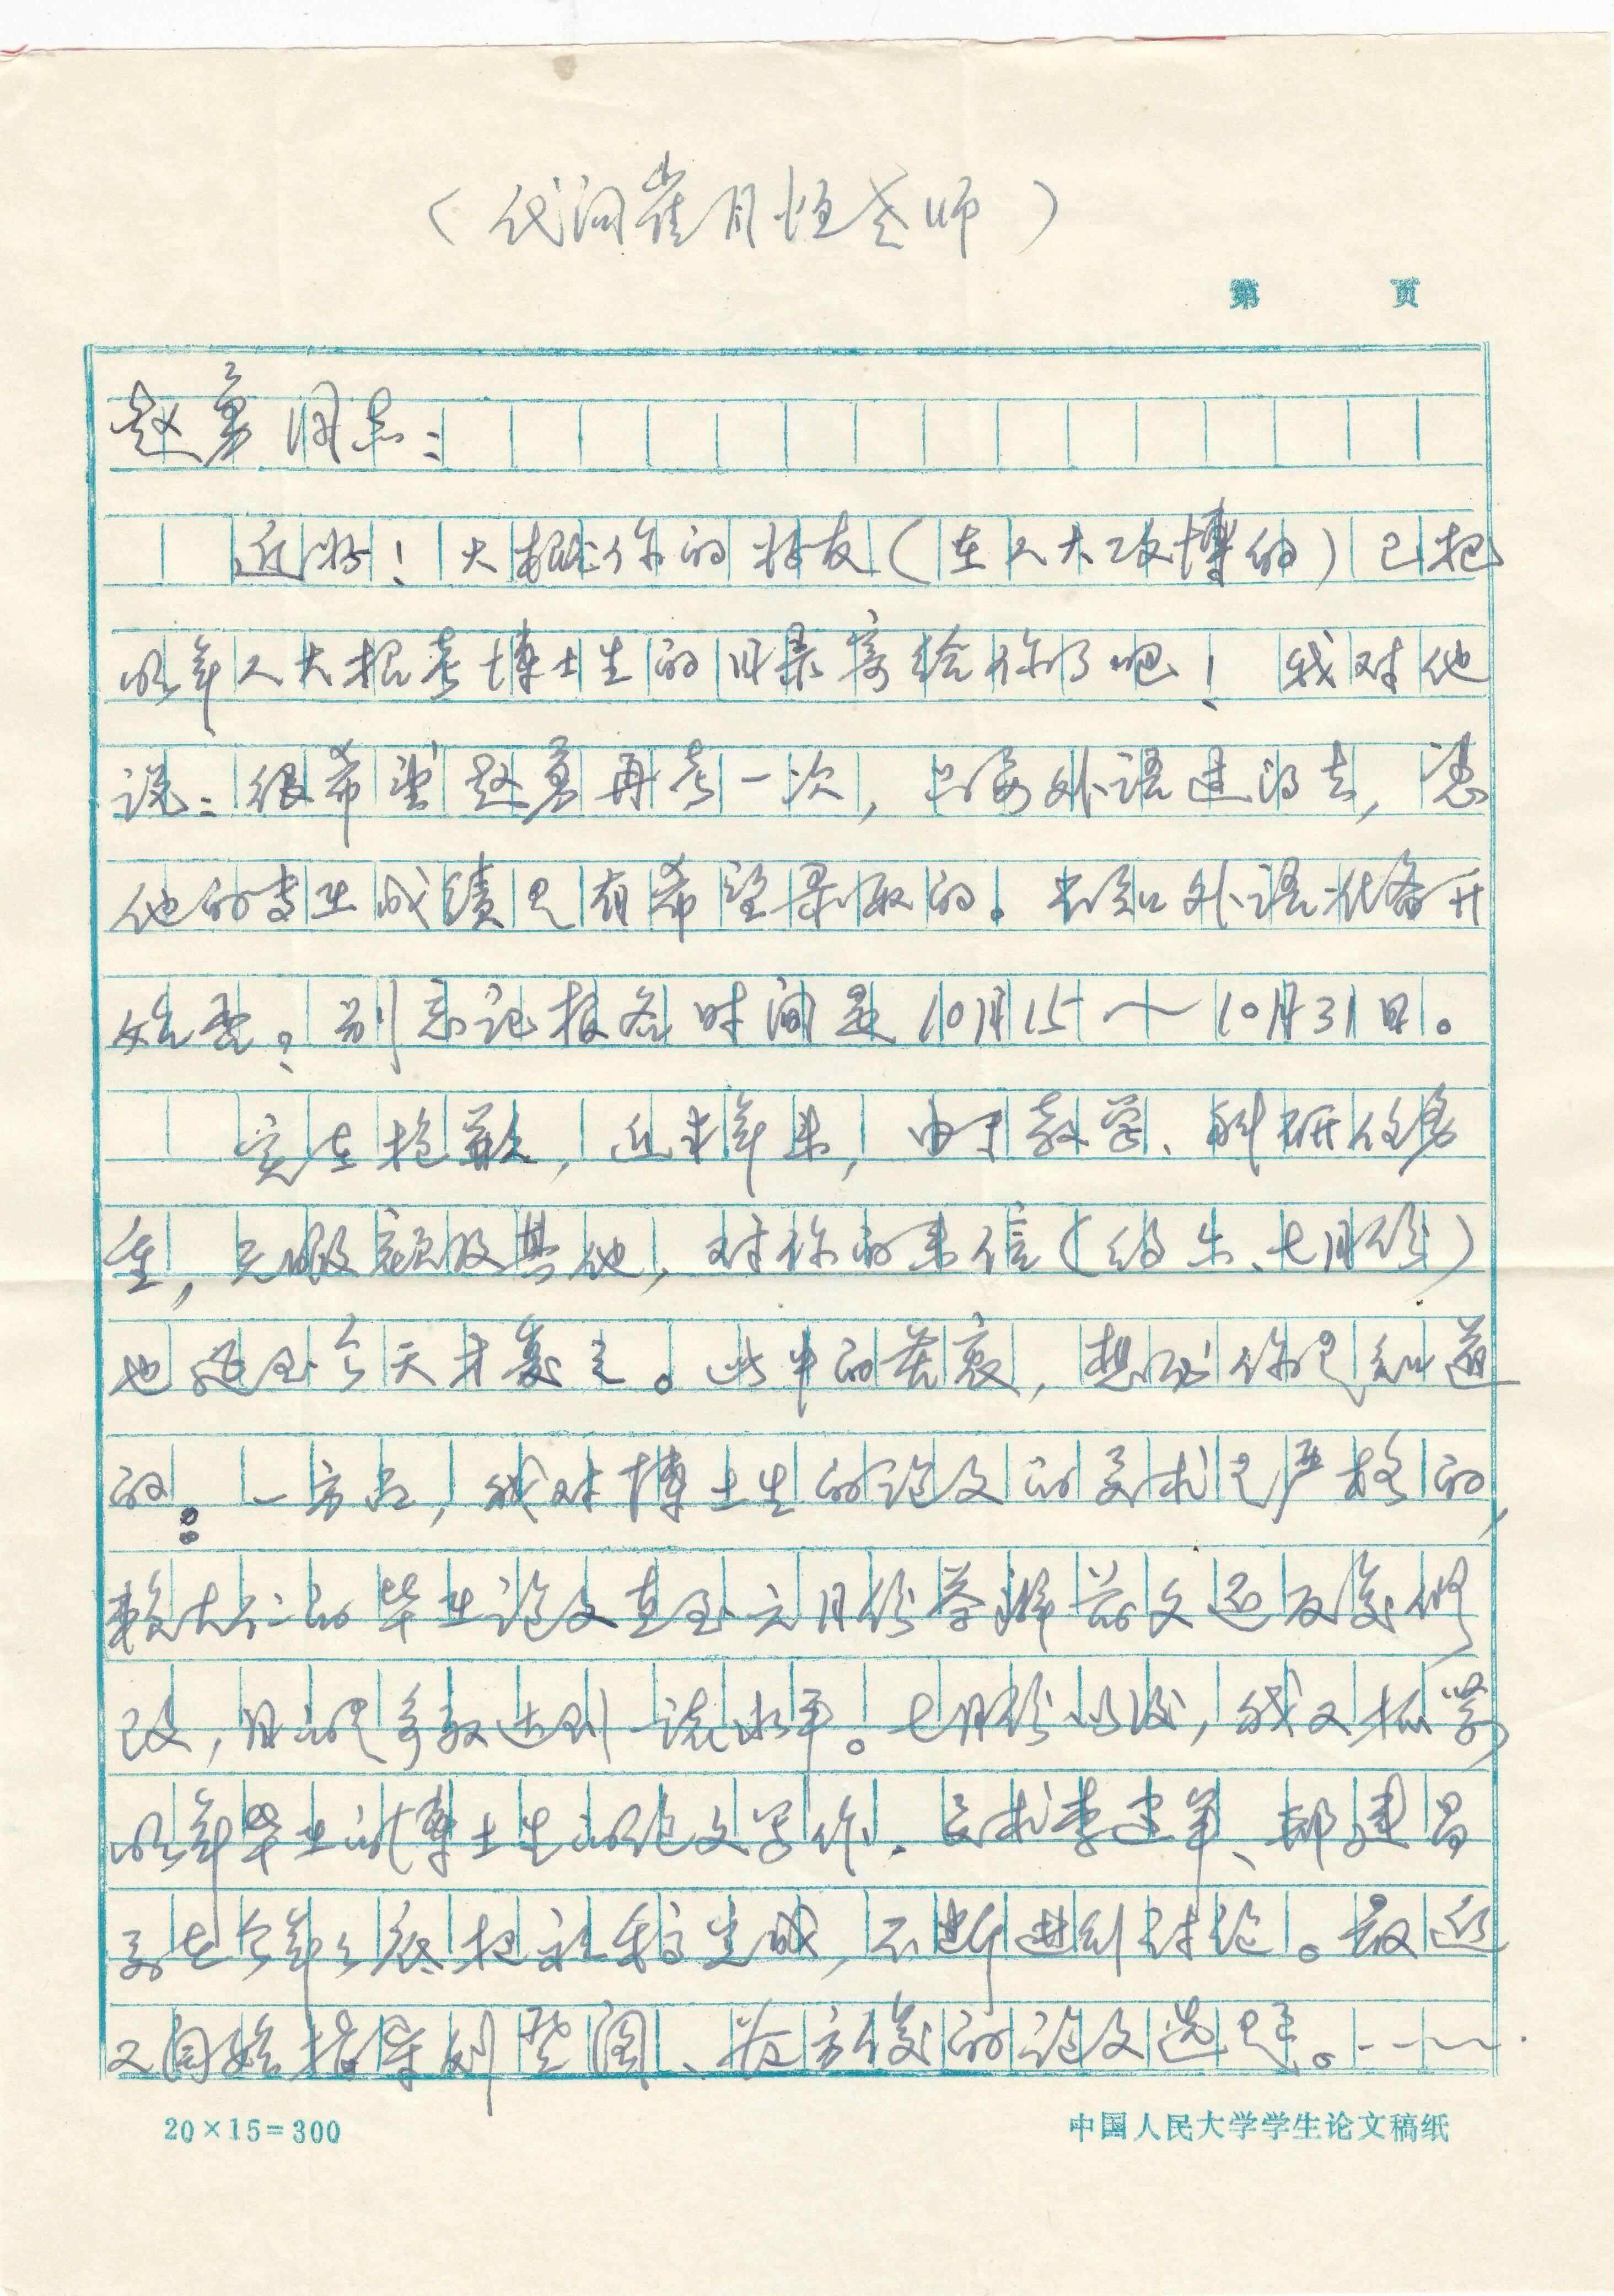 （代问崔月恒老师）
第 页
赵勇同志：
近好！大概你的好友（在人大攻博的）已把
明年人大报考博士生的目录寄给你了吧！我对他
说：很希望赵勇再考一次，只要外语过得去，凭
他的专业成绩是有希望录取的。不知外语准备开
始否？别忘记报名时间是10月15～10月31日。
实在抱歉，近半年来，由于教学、科研任务
重，无暇顾及其他，对你的来信（约六、七月份）
也迟至今天才复之。此中的苦衷，想必你是知道
的：一方面，我对博士生的论文的要求是严格的，
赖大仁的毕业论文直至六月份答辩前夕还反复修
改，目的是争取达到一流水平。七月份以后，我又抓紧
明年毕业的博士生的论文写作，要求李建军、郝建昌
于今年年底把初稿完成，不断进行讨论。最近
又开始指导刘 、 的论文选题。……
20×15=300
中国人民大学学生论文稿纸